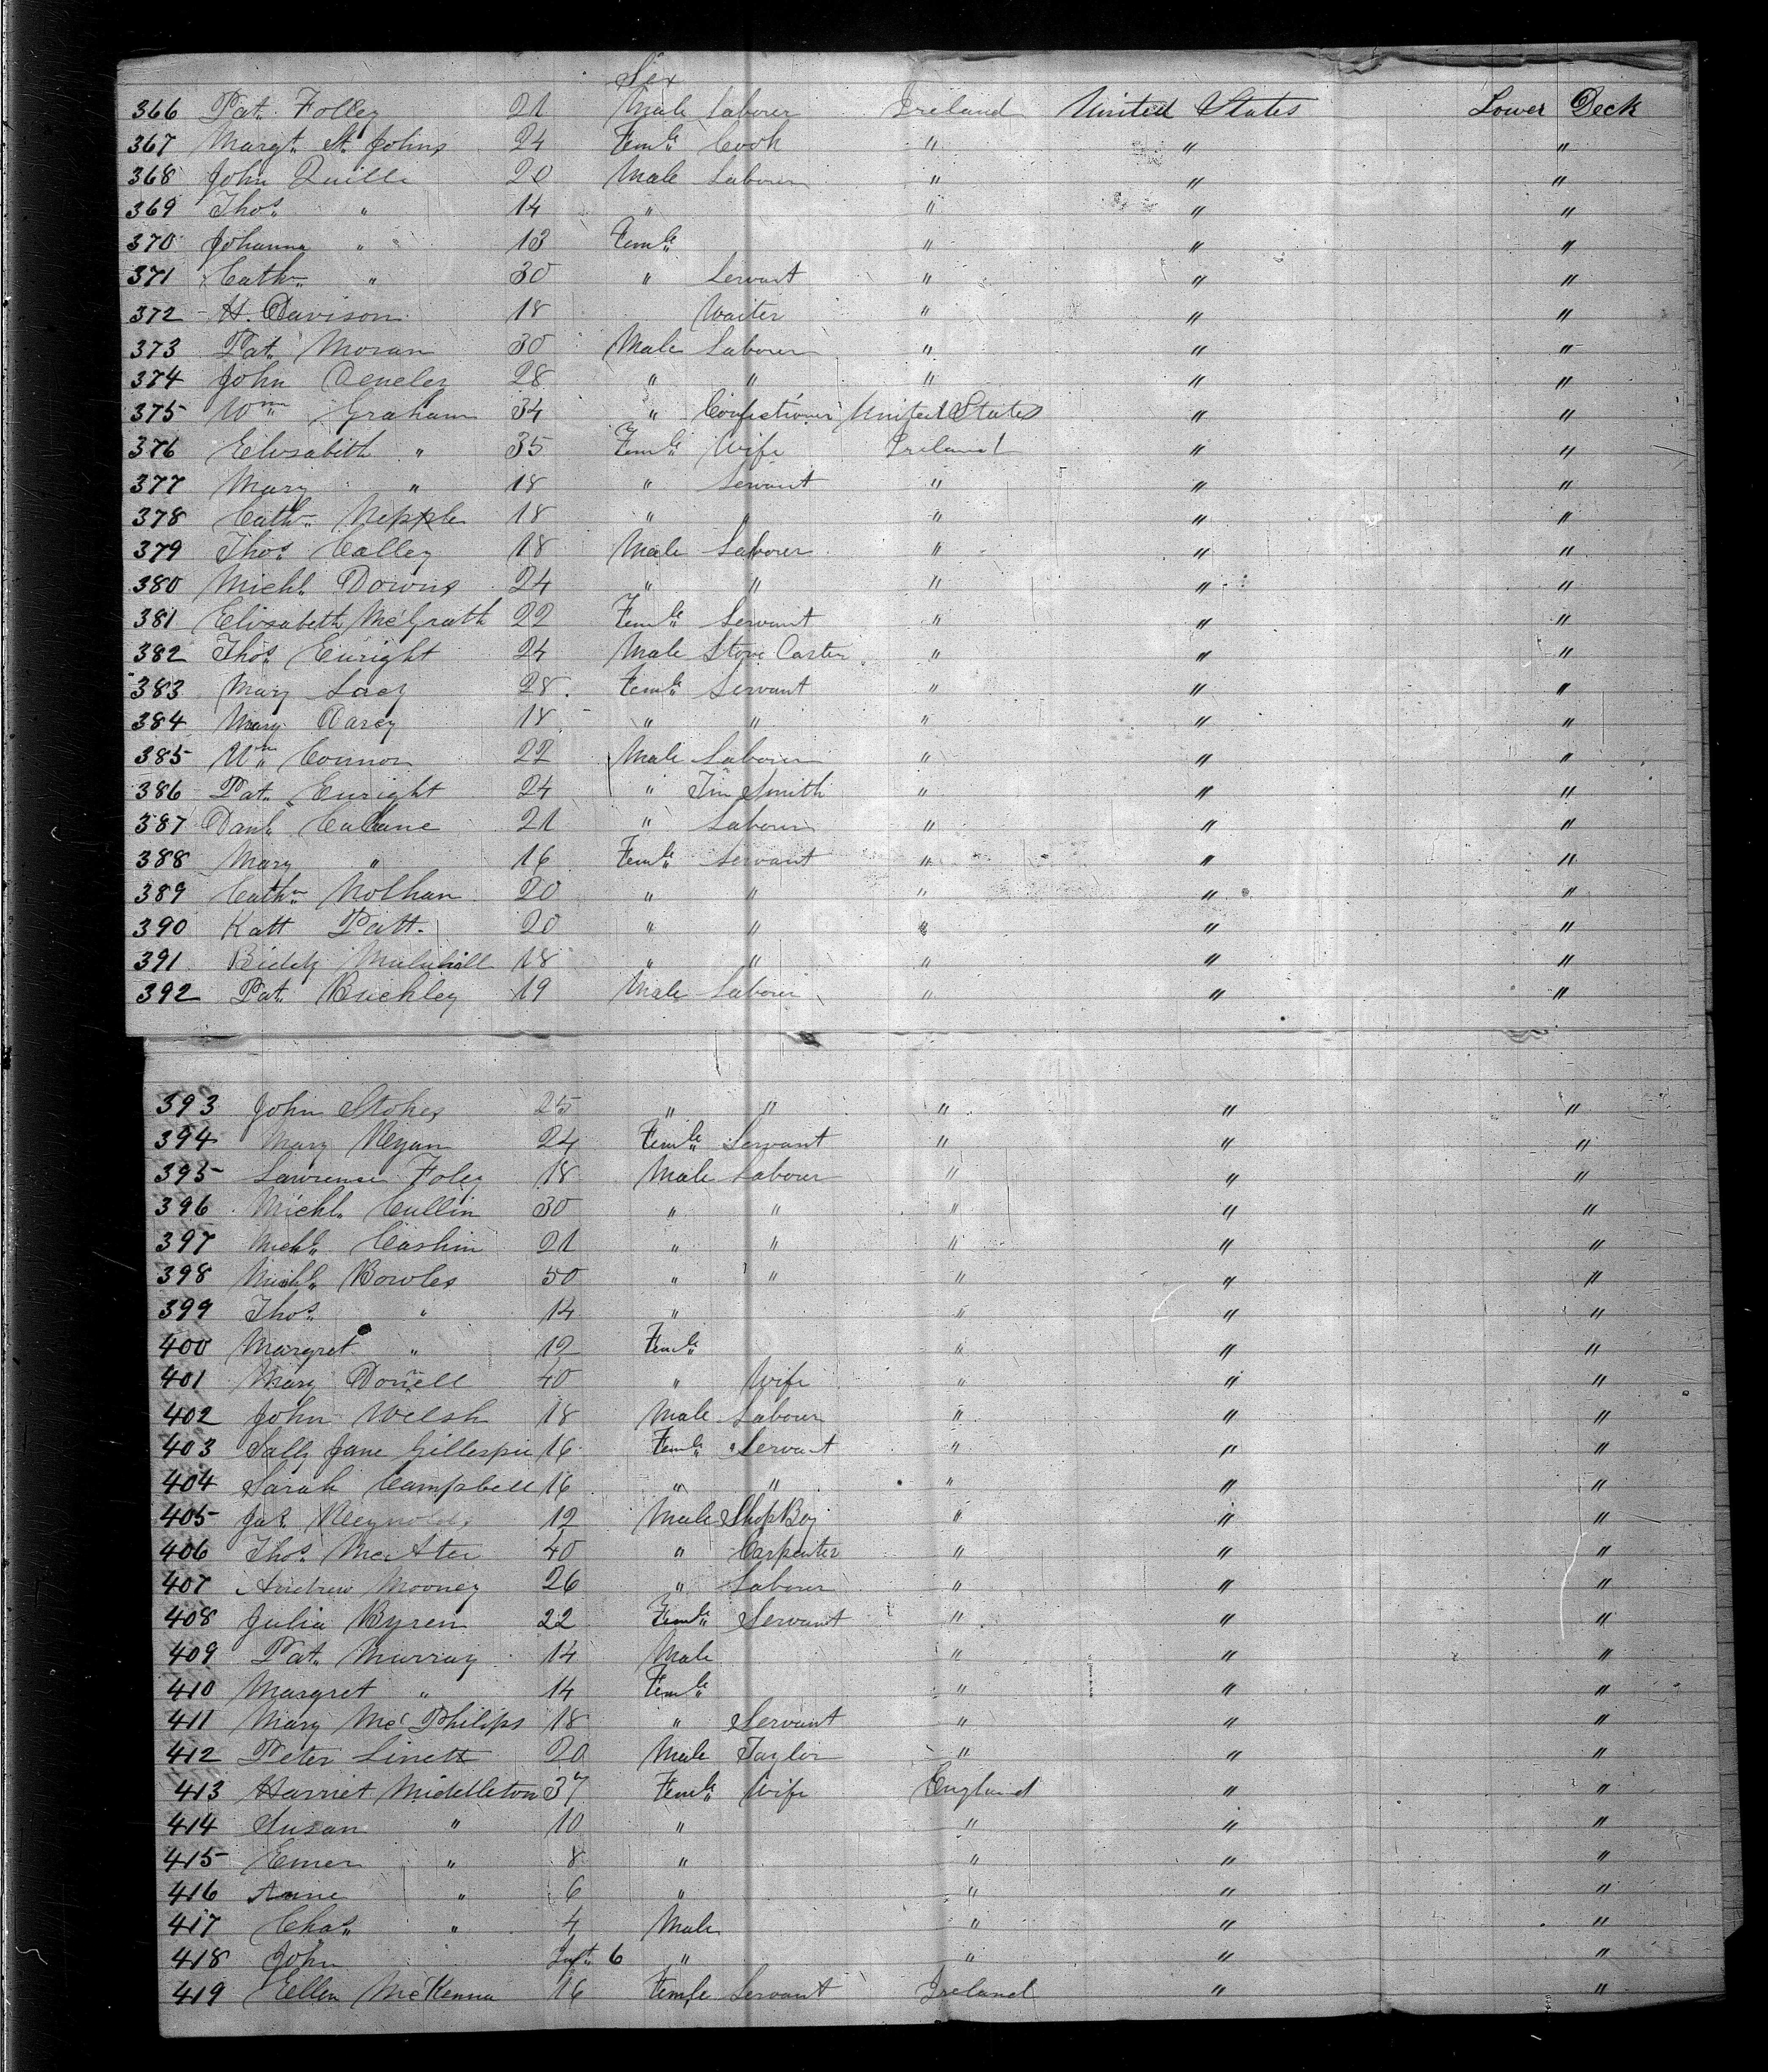 Sex
366 Pat. Folley 21 Male Laborer Ireland United States Lower Deck
367 Margt. St. Johns 24 Femle Cook " " "
368 John Quille 20 Male Laborer " " "
369 Thos. " 14 " " " "
370 Johanna " 13 Femle " " "
371 Cathn. " 30 " Servant " " "
372 H. Davison 18 Waiter " " "
373 Pat. Moran 30 Male Laborer " " "
374 John 28 " " " " "
375 Wm. Graham 34 " Confectioner United States " "
376 Elisabeth " 35 Femle Wife Ireland " "
377 Mary " 18 " Servant " " "
378 Cathn. Nepple 18 " " " " "
379 Thos. Calley 18 Male Laborer " " "
380 Michl. Downs 24 " " " " "
381 Elisabeth McGrath 22 Femle Servant " " "
382 Thos. Enright 24 Male Stove Caster " " "
383 Mary Lacy 28 Femle Servant " " "
384 Mary Darcy 18 " " " " "
385 Wm. Connor 22 Male Laborer " " "
386 Pat. Enright 24 " Tin Smith " " "
387 Danl. Callane 21 " Laborer " " "
388 Mary " 16 Femle Servant " " "
389 Cathn. Nolhan 20 " " " " "
390 Katt Patt. 20 " " " " "
391 Biddy Mulvihill 18 " " " " "
392 Pat. Buckley 19 Male Laborer " " "
393 John Stokes 25 " " " " "
394 Mary Ryan 24 Femle Servant " " "
395 Lawrense Foley 18 Male Labourer " " "
396 Michl. Cullin 30 " " " " "
397 Michl. Cashin 21 " " " " "
398 Michl. Bowles 50 " " " " "
399 Thos. " 14 " " " "
400 Margret " 12 Femle " " "
401 Mary Donnell 40 " Wife " " "
402 John Welsh 18 Male Labourer " " "
403 Sally Jane Gillespie 16 Femle Servant " " "
404 Sarah Campbell 16 " " " " "
405 Jas. Reynolds 12 Male Shop Boy " " "
406 Thos. McAtee 40 " Carpenter " " "
407 Andrew Mooney 26 " Laborer " " "
408 Julia Byren 22 Femle Servant " " "
409 Pat. Murray 14 Male " " "
410 Margret " 14 Femle " " "
411 Mary McPhilips 18 " Servant " " "
412 Peter Linett 20 Male Taylor " " "
413 Harriet Middleton 37 Femle Wife England " "
414 Susan " 10 " " " "
415 Emer " 8 " " " "
416 Anne " 6 " " " "
417 Chas. " 4 Male " " "
418 John Inft. 6 " " " "
419 Ellen McKenna 16 Femle Servant Ireland " "